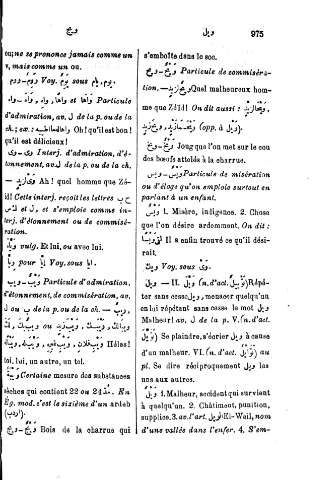 ويح
ويل
975
ou; ne se prononce jamais comme un
v, mais comme un ou.
يوم Voy. sous وَوْم — وَوْم
Particule وَاه et وَاهًا — وَاه
d'admiration, av. لِ de la p. ou de la
ch.; ex.: Oh! qu'il est bon!
qu'il est délicieux!
Interj. d'admiration, d'é-
tonnement, av. لِ de la p. ou de la ch.
— Ah! quel homme que Zé-
id! Cette interj. reçoit les lettres ب ح
س ل et s'emploie comme in-
terj. d'étonnement ou de commisé-
ration.
vulg. Et lui, ou avec lui.
وَيَّا pour إِيَّا Voy. sous إيا.
Particule d'admiration,
d'étonnement, de commisération, av.
لِ ou بِ de la p. ou de la ch. —
Hélas!
toi, lui, un autre, un tel.
Certaine mesure des substances
sèches qui contient 22 ou 24 مُدّ. En
Ég. mod. c'est le sixième d'un ardeb
(اردب).
وَيْج — وَيْج Bois de la charrue qui
s'emboîte dans le soc.
وَيْح — وَيْح Particule de commiséra-
tion. — وَيْحَ زَيْدٍ Quel malheureux hom-
me que Zéïd! On dit aussi:
(opp. à وَيْل).
Joug que l'on met sur le cou
des bœufs attelés à la charrue.
وَيْس — وَيْس Particule de misération
ou d'éloge qu'on emploie surtout en
parlant à un enfant.
وَيْس 1. Misère, indigence. 2. Chose
que l'on désire ardemment. On dit:
Il a enfin trouvé ce qu'il dési-
rait.
وَيْك Voy. sous وَىْ.
ويل — II. وَيَّلَ (n. d'act. تَوْيِيل) Répé-
ter sans cesse ويل, menacer quelqu'un
en lui répétant sans cesse le mot ويل
Malheur! av. لِ de la p. V. (n. d'act.
Se plaindre, s'écrier à cause
d'un malheur. VI. (n. d'act. تَوَايُل) au
pl. Se dire réciproquement ويل les
uns aux autres.
وَيْل 1. Malheur, accident qui survient
à quelqu'un. 2. Châtiment, punition,
supplice. 3. av. l'art. الوَيْل El-Wail, nom
d'une vallée dans l'enfer. 4. S'em-